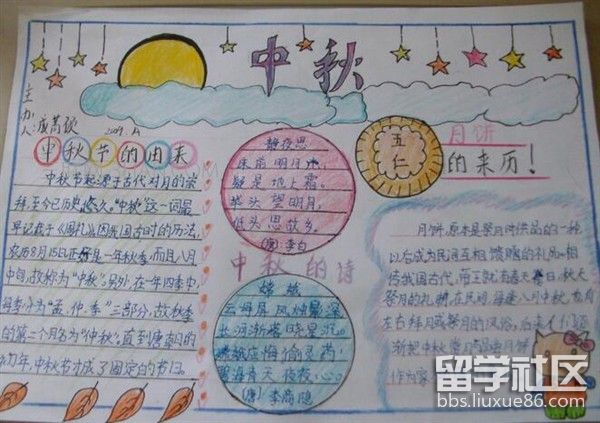 中秋
主办人:
2009.
中秋节的由来
中秋节起源于古代对月的崇
拜,至今已历史悠久。"中秋"这一词最
早记载于《周礼》。因我国古时的历法,
农历8月15日正好是一年秋季,而且八月
中旬,故称为"中秋"。另外,在一年四季中,
每季分为"孟、仲、季"三部分,故秋季
的第二个月名为"仲秋"。直到唐朝
初年,中秋节才成了固定的节日。
静夜思
床前明月光,
疑是地上霜。
举头望明月,
低头思故乡。
(唐)李白
中秋的诗
嫦娥
云母屏风烛影深,
长河渐落晓星沉。
嫦娥应悔偷灵药,
碧海青天夜夜心。
(唐)李商隐
五仁
月饼
的来历!
月饼,原本是祭月时供品的一种
以后成为民间互相馈赠的礼品。相
传我国古代,每王就有春天 日,秋天
祭月的礼 在民间,每逢八月中秋,也有
左右拜月或祭月的风俗,后来人们逐
渐把中秋赏 与品 月饼
作为家
留学社区
bbs.liuxue86.com